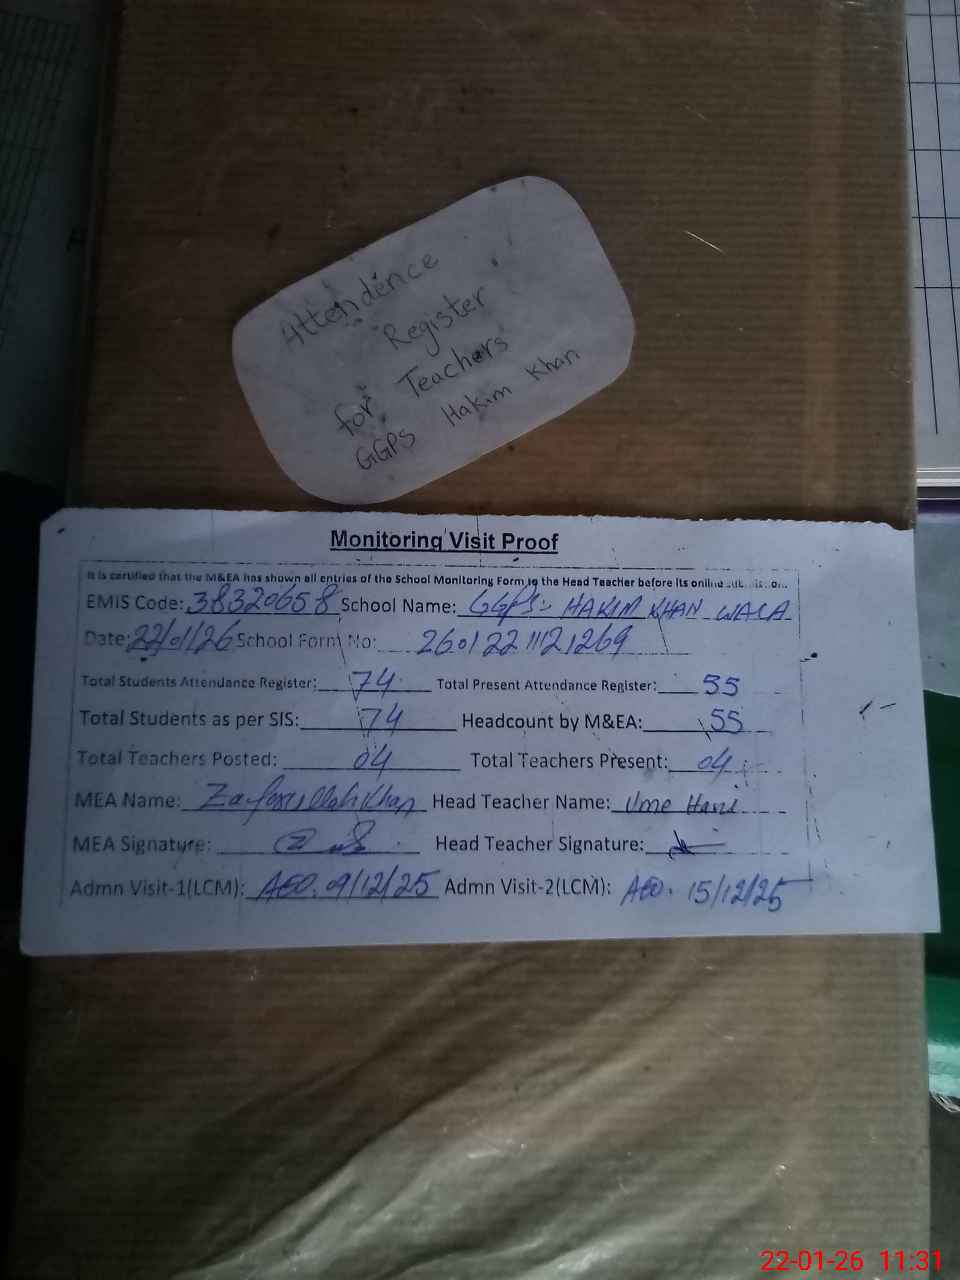 Attendence
Register
for Teachers
GGPS Hakim Khan
Monitoring Visit Proof
It is certified that the M&EA has shown all entries of the School Monitoring Form to the Head Teacher before its online submission.
EMIS Code: 38320658 School Name: GGPS:- HAKIM KHAN WALA
Date: 22/01/26 School Form No: 260122 112 1269
Total Students Attendance Register: 74 Total Present Attendance Register: 55
Total Students as per SIS: 74 Headcount by M&EA: 55
Total Teachers Posted: 04 Total Teachers Present: 04
MEA Name: Zafarullah Khan Head Teacher Name: Ume Hani
MEA Signature: Head Teacher Signature:
Admn Visit-1(LCM): AEO. 09/12/25 Admn Visit-2(LCM): AEO. 15/12/25
22-01-26 11:31